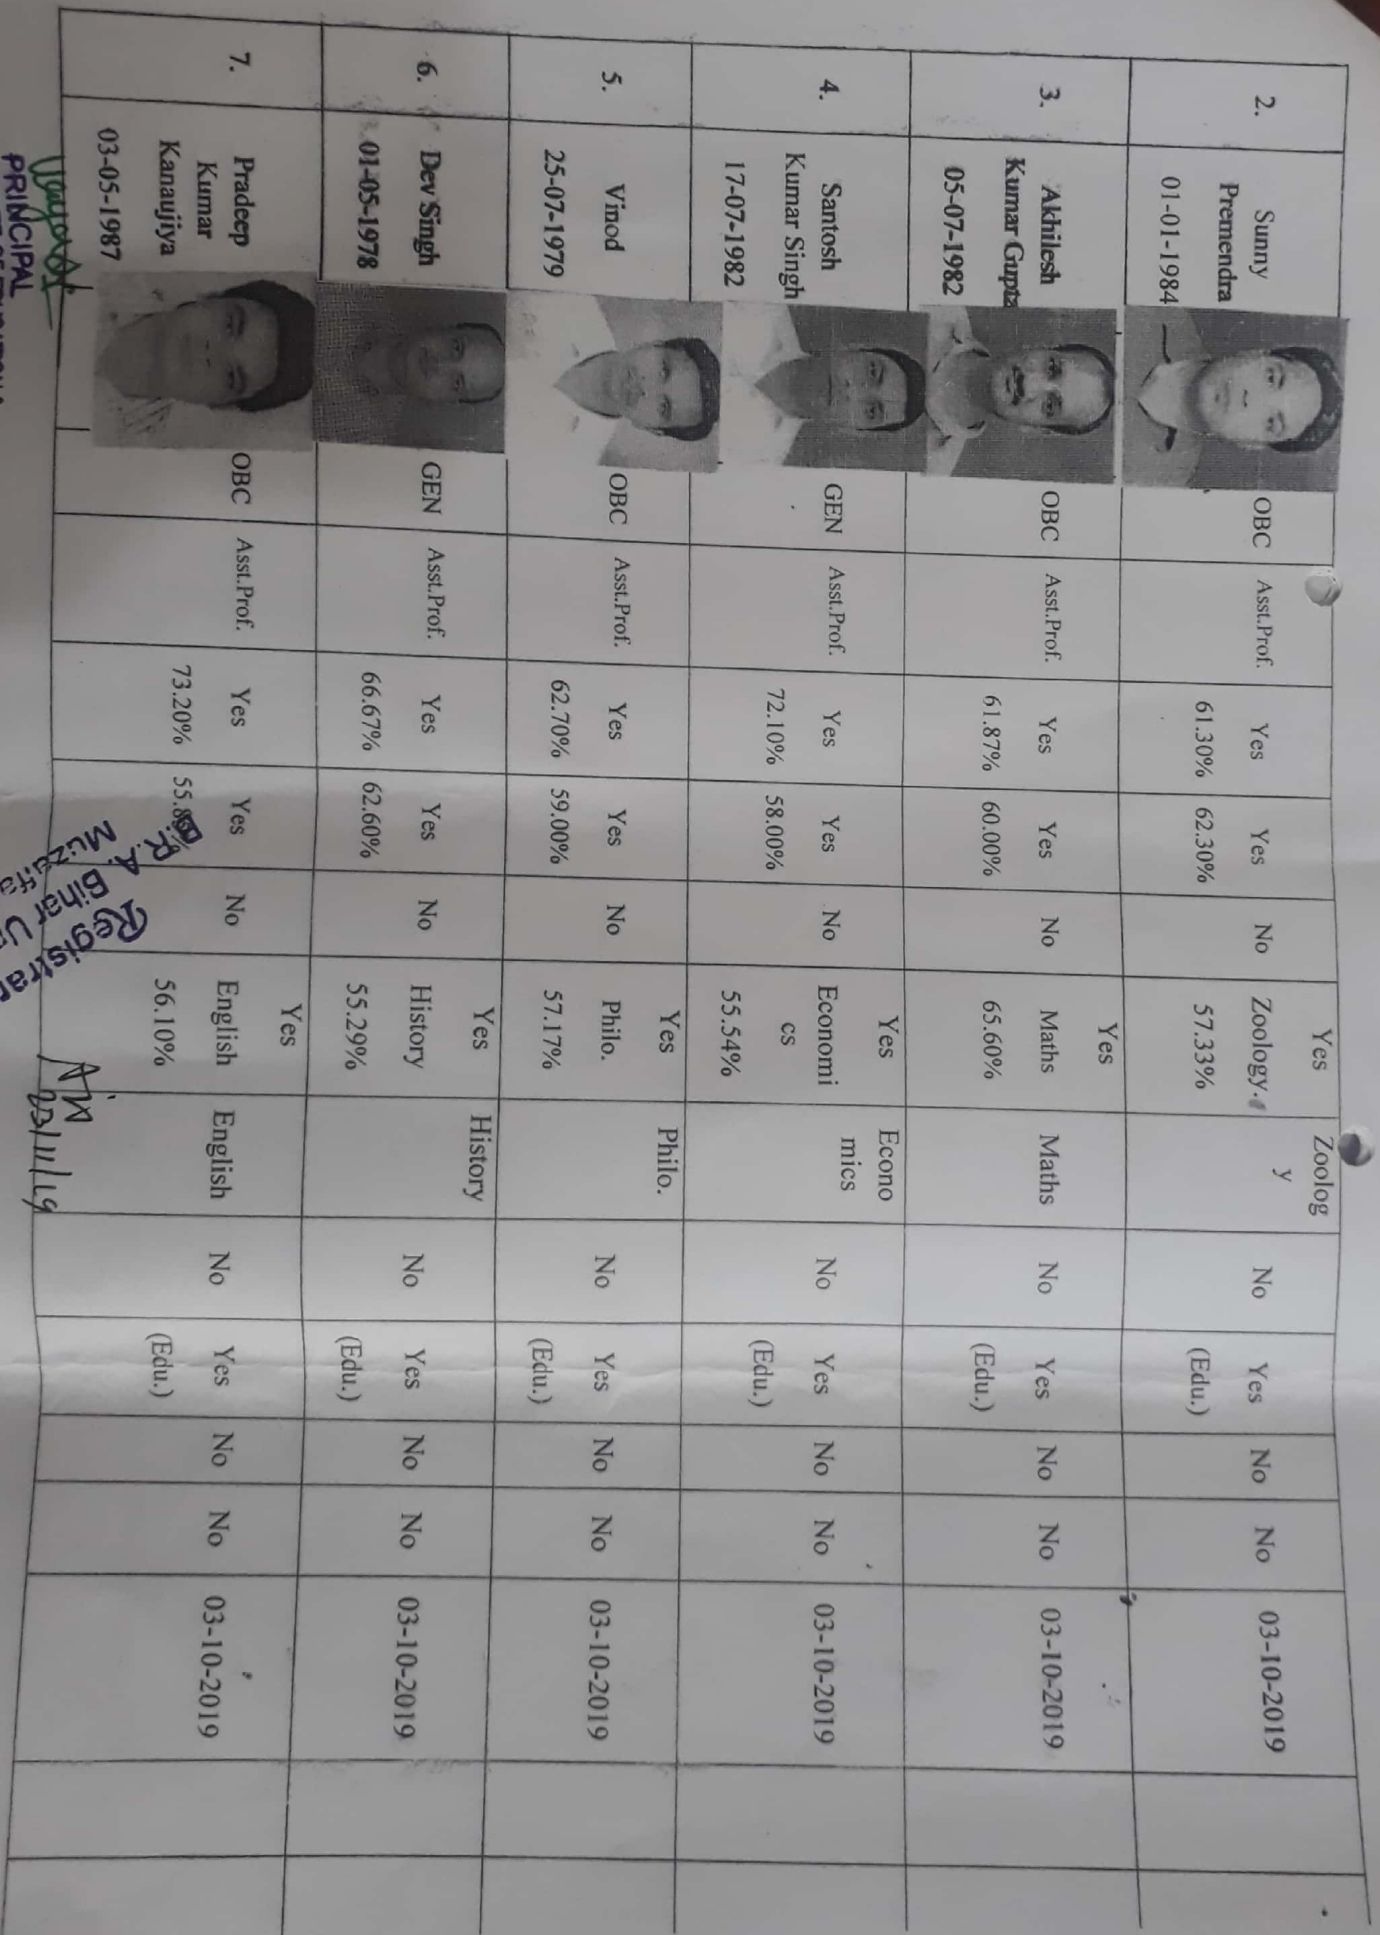 2. Sunny Premendra 01-01-1984 OBC Asst.Prof. Yes 61.30% Yes 62.30% No Yes Zoology. 57.33% Zoolog y No Yes (Edu.) No No 03-10-2019
3. Akhilesh Kumar Gupta 05-07-1982 OBC Asst.Prof. Yes 61.87% Yes 60.00% No Yes Maths 65.60% Maths No Yes (Edu.) No No 03-10-2019
4. Santosh Kumar Singh 17-07-1982 GEN Asst.Prof. Yes 72.10% Yes 58.00% No Yes Economi cs 55.54% Econo mics No Yes (Edu.) No No 03-10-2019
5. Vinod 25-07-1979 OBC Asst.Prof. Yes 62.70% Yes 59.00% No Yes Philo. 57.17% Philo. No Yes (Edu.) No No 03-10-2019
6. Dev Singh 01-05-1978 GEN Asst.Prof. Yes 66.67% Yes 62.60% No Yes History 55.29% History No Yes (Edu.) No No 03-10-2019
7. Pradeep Kumar Kanaujiya 03-05-1987 OBC Asst.Prof. Yes 73.20% Yes No Yes English 56.10% English No Yes (Edu.) No No 03-10-2019
PRINCIPAL
Registrar
B.R.A. Bihar
23/11/19